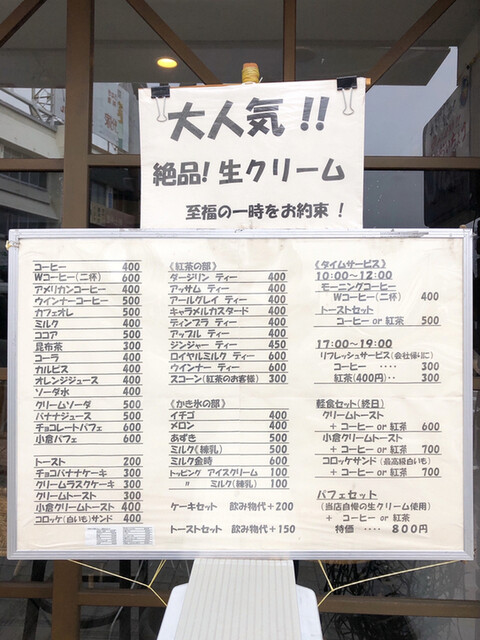 大人気!!
絶品!生クリーム
至福の一時をお約束!
コーヒー 400
Wコーヒー(二杯) 600
アメリカンコーヒー 400
ウインナーコーヒー 500
カフェオレ 500
ミルク 400
ココア 500
昆布茶 300
コーラ 400
カルピス 400
オレンジジュース 400
ソーダ水 400
クリームソーダ 500
バナナジュース 500
チョコレートパフェ 600
小倉パフェ 600
トースト 200
チョコバナナケーキ 300
クリームラスクケーキ 300
クリームトースト 300
小倉クリームトースト 400
コロッケ(白いも)サンド 400
《紅茶の部》
ダージリン ティー 400
アッサム ティー 400
アールグレイ ティー 400
キャラメルカスタード 400
ディンブラ ティー 400
アップル ティー 400
ジンジャー ティー 450
ロイヤルミルク ティー 600
ウインナー ティー 600
スコーン(紅茶のお客様) 300
《かき氷の部》
イチゴ 400
メロン 400
あずき 500
ミルク(練乳) 500
ミルク金時 600
トッピング アイスクリーム 100
〃 ミルク(練乳) 100
ケーキセット 飲み物代+200
トーストセット 飲み物代+150
《タイムサービス》
10:00〜12:00
モーニングコーヒー
Wコーヒー(二杯) 400
トーストセット
コーヒー or 紅茶 500
17:00〜19:00
リフレッシュサービス(会社帰りに)
コーヒー ‥‥ 300
紅茶(400円)‥ 300
軽食セット(終日)
クリームトースト
+ コーヒー or 紅茶 600
小倉クリームトースト
+ コーヒー or 紅茶 700
コロッケサンド(最高級白いも)
+ コーヒー or 紅茶 700
パフェセット
(当店自慢の生クリーム使用)
+ コーヒー or 紅茶
特価 ‥‥ 800円